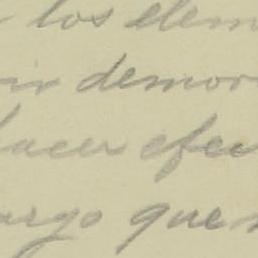 los elem
sin demor
hacer efec
argo que